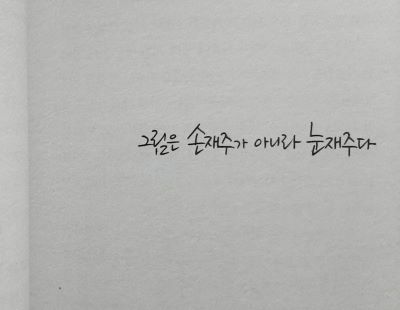 그림은 손재주가 아니라 눈재주다